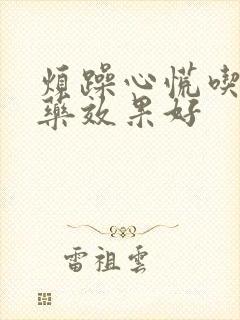 煩躁心慌喫
藥效果好
雷祖雲